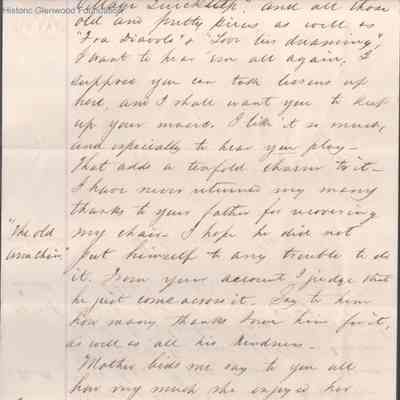 Historic Glenwood Foundation
and all those
old and pretty pieces as well as
"Fra Diavolo" & "Love lies dreaming",
I want to hear 'em all again. I
suppose you can take lessons up
here, and I shall want you to keep
up your music. I like it so much,
and especially to hear you play—
That adds a tenfold charm to it—
I have never returned my many
thanks to your father for recovering
"The old
my chair— I hope he did not
put himself to any trouble to do
it. From your account I judge that
he just come across it. Say to him
how many thanks I owe him for it,
as well as all his kindness—
Mother bids me say to you all
how very much she enjoyed her